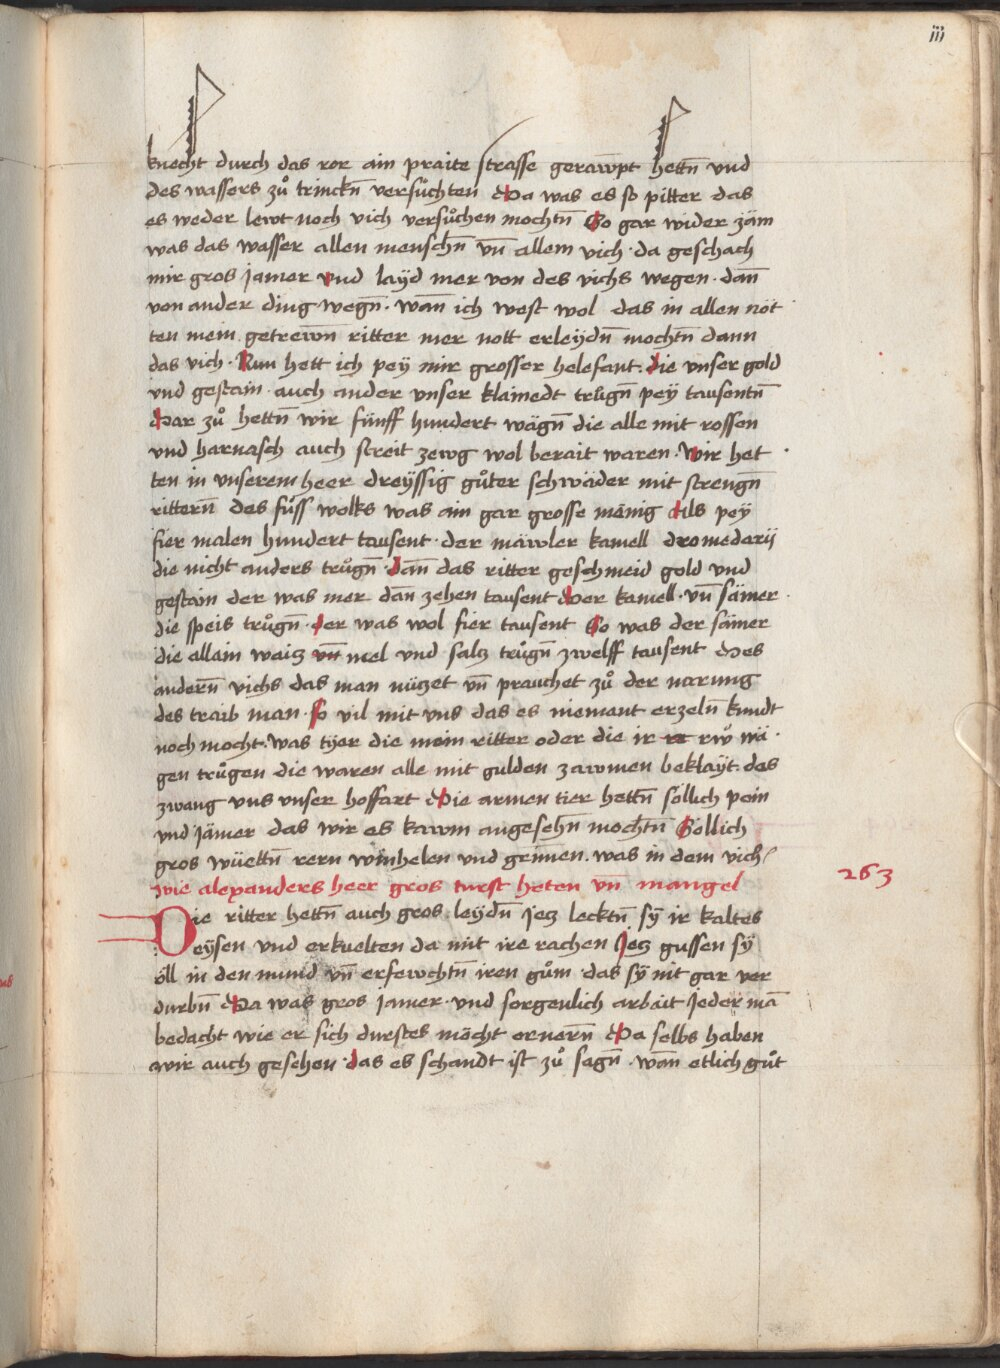 iij
knecht durch das ror ain praite strasse gerawpt hettn̄ vnd
des wassers zů trinckn̄ versůchten Da was es so pitter das
es weder lewt noch vich versůchen mochtn̄ So gar wider zäm
was das wasser allen menschn̄ vn̄ allem vich · da geschach
mir gros jamer vnd layd mer von des vichs wegen · dan̄
von ander ding wegn̄ · wan̄ ich west wol das in allen nöt
ten mein getrewn̄ ritter mer nott erleydn̄ mochtn̄ dann
das vich · Nun hett ich pey mir grosser helefant · die vnser gold
vnd gestain · auch ander vnser klainedt trůgn̄ pey tausentn̄
Dar zů hettn̄ wir fünff hundert wägn̄ die alle mit rossen
vnd harnasch auch streit zewg wol berait waren · Wir het
ten in vnserem heer dreyssig gůter schwäder mit strengn̄
rittern̄ des fůss volks was ain gar grosse mänig Als pey
fier malen hundert tausent · der mäwler kamell dromedarij
die nicht anders trůgn̄ · Dan̄ das ritter geschmeid gold vnd
gestain der was mer dan̄ zehen tausent Der kamell · vn̄ sämer
die speis trůgn̄ · der was wol fier tausent So was der sämer
die allain waicz vn̄ mel vnd salcz trůgn̄ zwelff tausent Des
andern̄ vichs das man nüczet vn̄ prauchet zů der narung
des traib man · so vil mit vns das es niemant erzeln̄ kundt
noch mocht · Was tyer die mein ritter oder die ir rwů wä ·
gen trůgen die waren alle mit gulden zawmen beklayt · des
zwang vns vnser hoffart Die armen tier hettn̄ söllich pein
vnd jämer das wir es kawm angesehn̄ mochtn̄ Söllich
gros wüettn̄ rern winhelen vnd grinnen · was in dem vich
wie alexanders heer gros turst heten vn̄ mangel
263
Die ritter hettn̄ auch gros leydn̄ Jecz lecktn̄ sy ir kaltes
eysen vnd erkuelten da mit ire rachen Jecz gussen sy
öll in den mund vn̄ erfewchtn̄ iren gům · das sy nit gar ver
durbn̄ Da was gros jamer · vnd sorgenlich arbait Jeder man̄
bedacht wie er sich durstes möcht ernern̄ Da selbs haben
wir auch gesehen · das es schandt ist zů sagn̄ · wan̄ etlich gůt